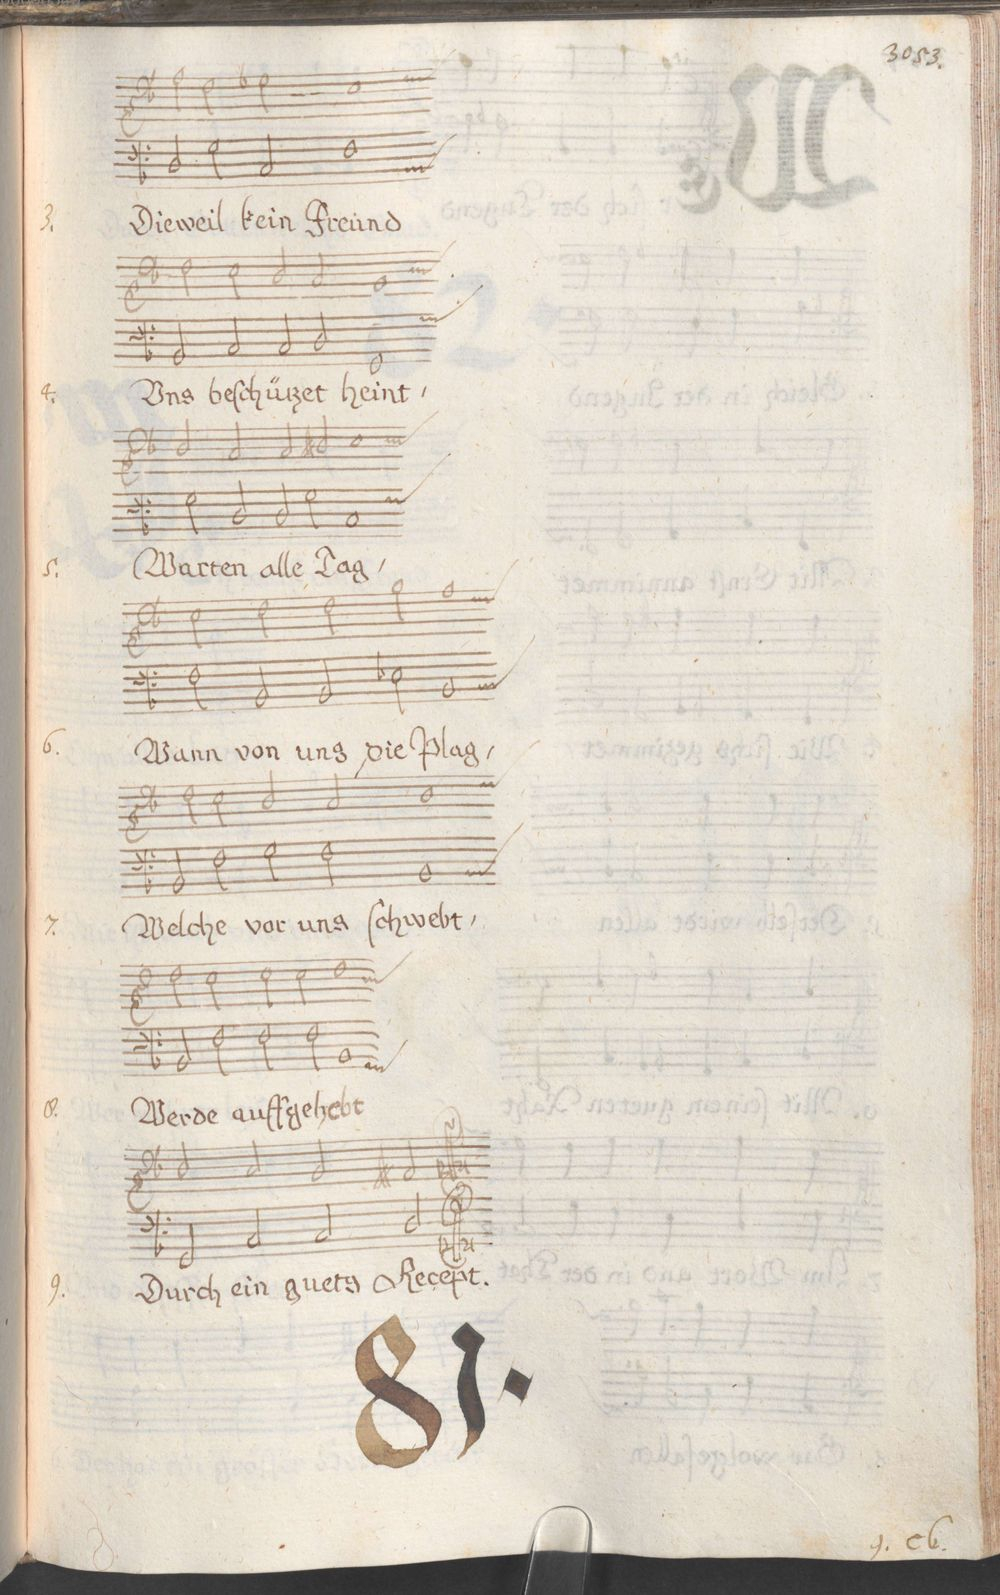 3053.
3. Dieweil kein Freünd
4. Vns beschüzet heint,
5. Warten alle Tag,
6. Wann von uns die Plag,
7. Welche vor uns schwebt,
8. Werde auffgehebt
9. Durch ein guets Recept.
81.